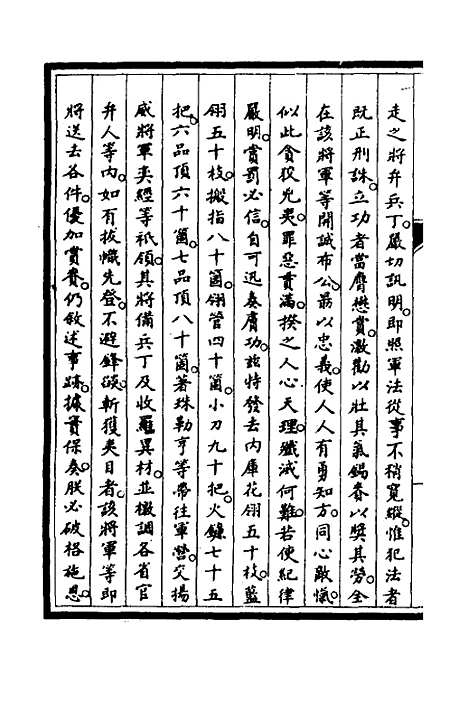 走之將弁兵丁。嚴切訊明。即照軍法從事不稍寬縱。惟犯法者
既正刑誅。立功者當膺懋賞。激勸以壯其氣。錫賚以獎其勞。全
在該將軍等開誠布公。勗以忠義。使人人有勇知方。同心敵愾。
似此貪狡兇夷。罪惡貫滿。揆之人心天理。殲滅何難。若使紀律
嚴明。賞罰必信。自可迅奏膚功。茲特發去內庫花翎五十枝。藍
翎五十枝。搬指八十箇。翎管四十箇。小刀九十把。火鐮七十五
把。六品頂六十箇。七品頂八十箇。著珠勒亨等帶往軍營。交揚
威將軍奕經等祇領。其將備兵丁及收羅異材。並檄調各省官
弁人等內。如有拔幟先登。不避鋒燄。斬獲夷目者。該將軍等即
將送去各件。優加賞賚。仍敘述事跡。據實保奏。朕必破格施恩。